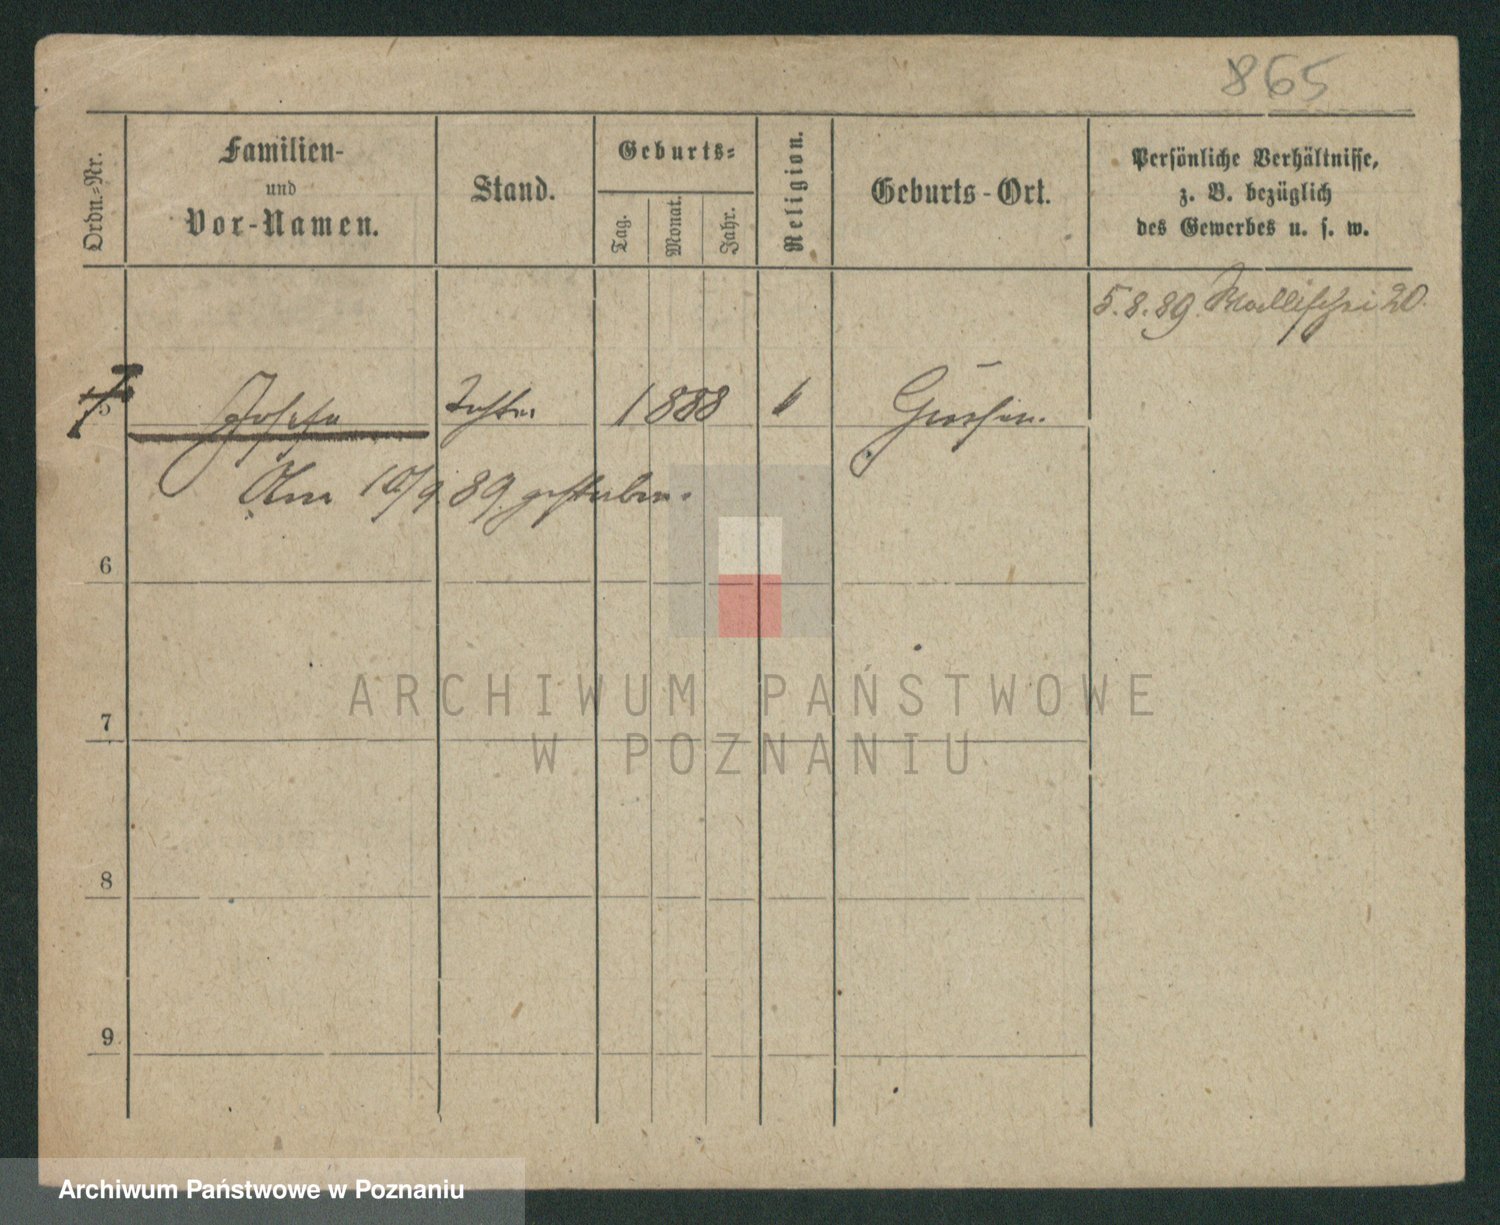 865
Ordn.-Nr.
Familien-
und
Vor-Namen.
Stand.
Geburts-
Tag.
Monat.
Jahr.
Religion.
Geburts-Ort.
Persönliche Verhältnisse,
z. B. bezüglich
des Gewerbes u. s. w.
5.8.89. Wallischei 20.
5 Josefa Tochter 1888
Am 10/9. 89. gestorben.
6
7
8
9
ARCHIWUM PAŃSTWOWE
W POZNANIU
Archiwum Państwowe w Poznaniu